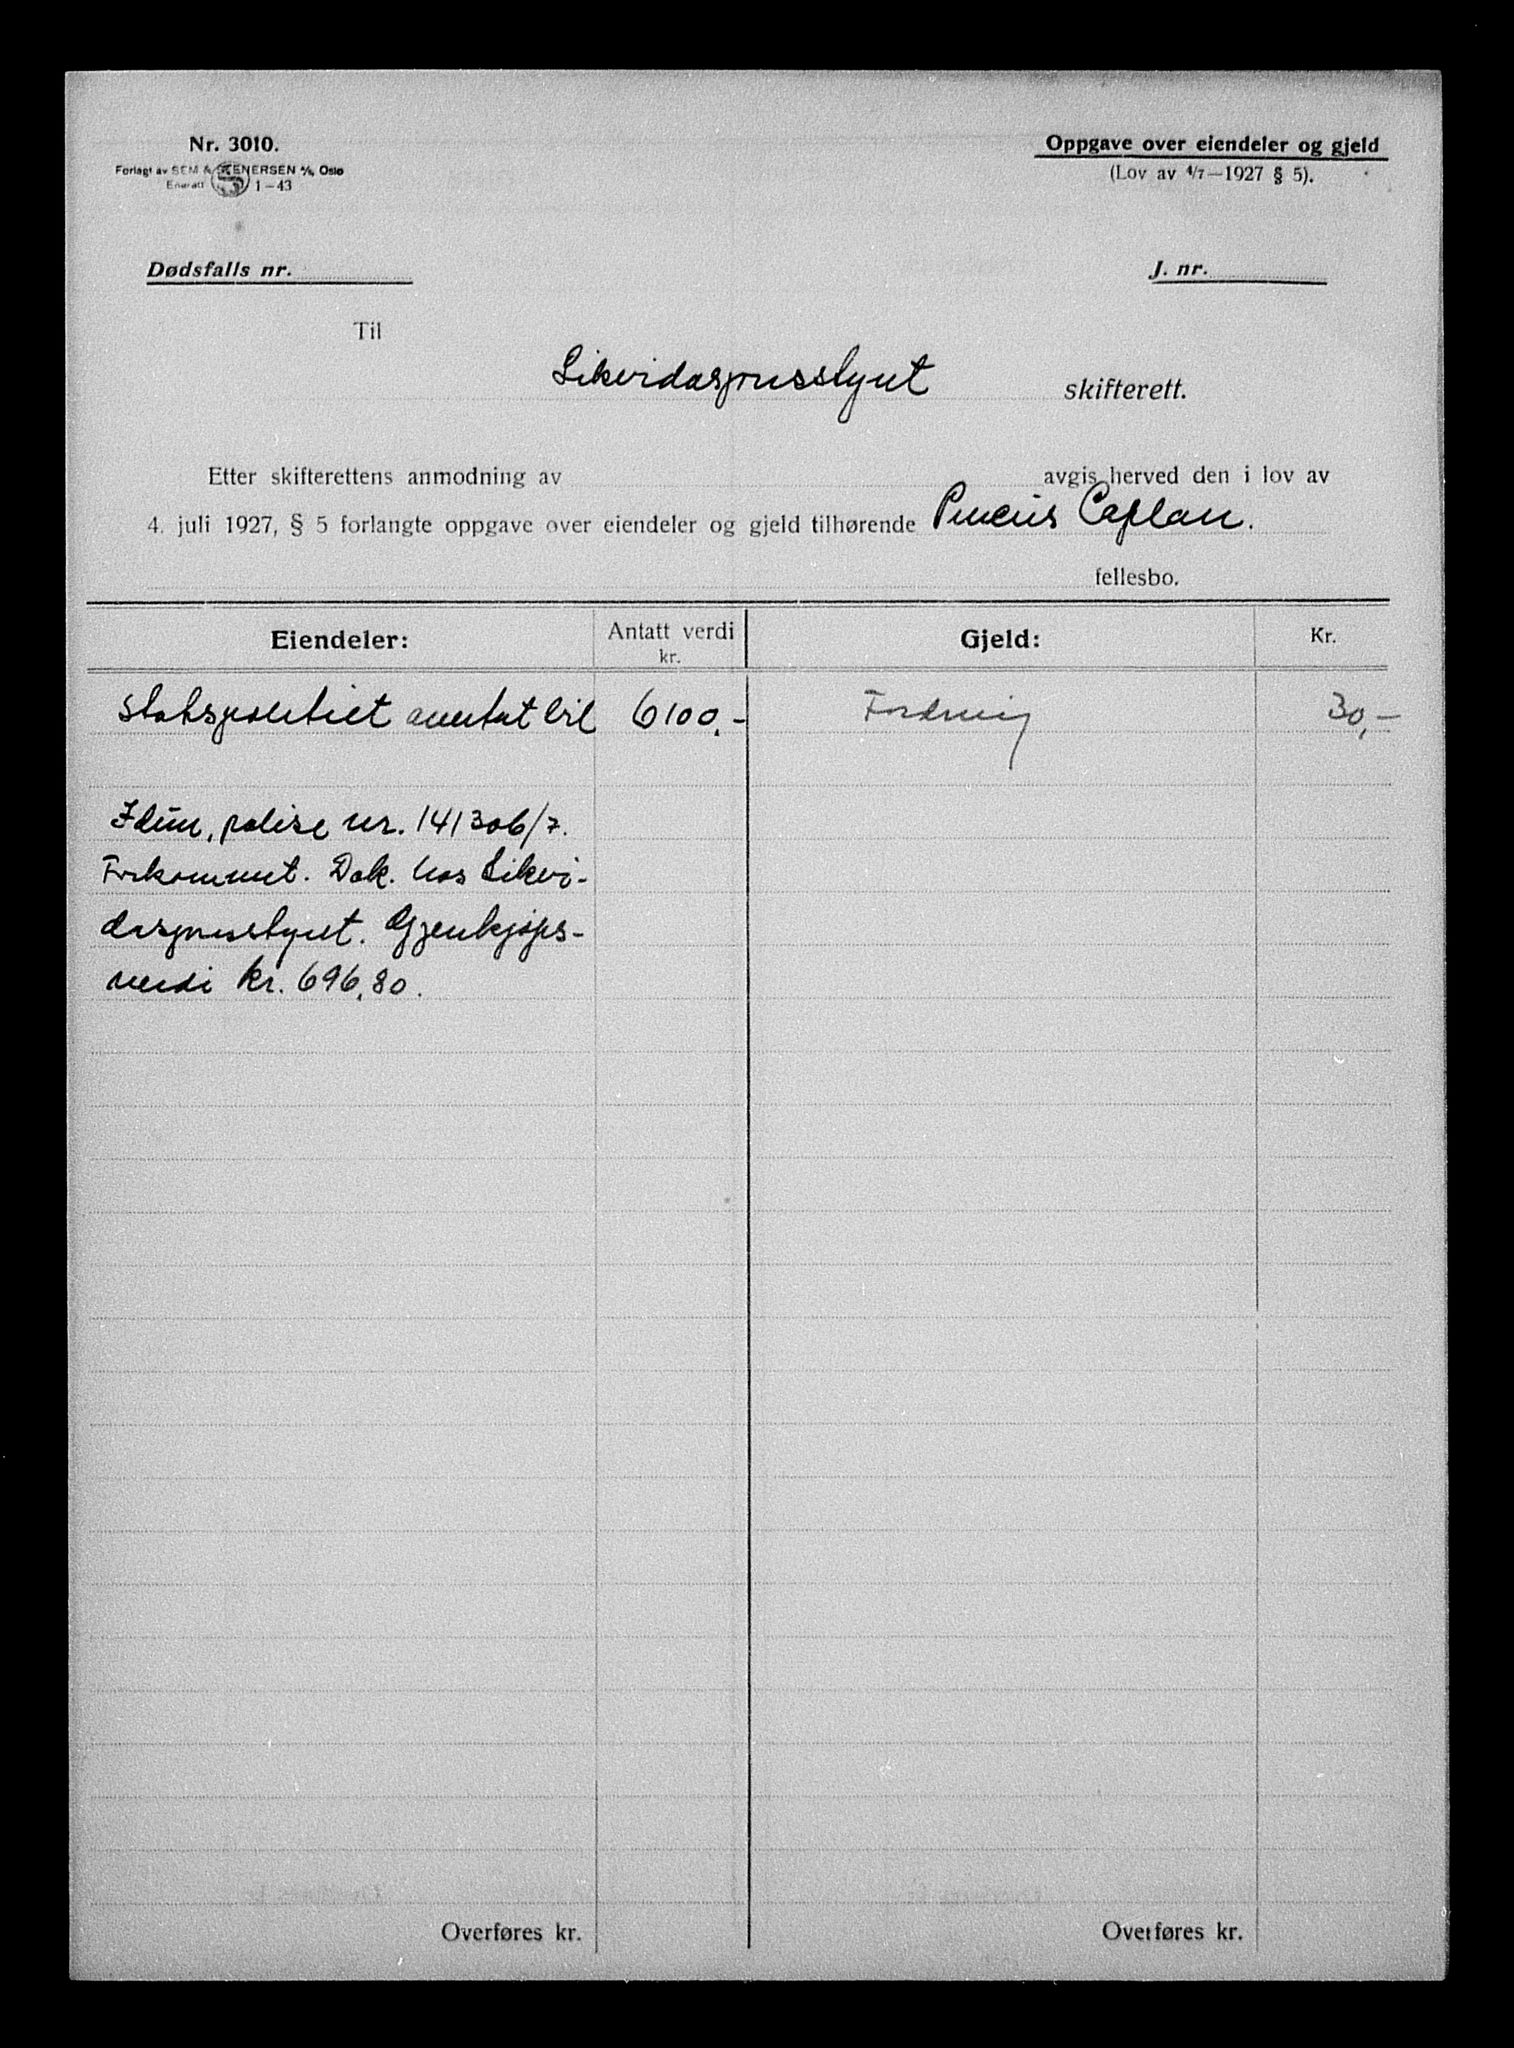 Nr. 3010.
Forlagt av SEM & STENERSEN A/S, Oslo
Enerett 1-43
Oppgave over eiendeler og gjeld
(Lov av 4/7-1927 § 5).
Dødsfalls nr.
J. nr.
Til
Likvidasjonsstyret skifterett.
Etter skifterettens anmodning av avgis herved den i lov av
4. juli 1927, § 5 forlangte oppgave over eiendeler og gjeld tilhørende Pincus Caplan.
fellesbo.
Eiendeler: Antatt verdi kr. Gjeld: Kr.
Statspolitiet avertat bil 6100,- Fordring 30,-
Idun, polise nr. 141306/7.
Forkommet. Dok. hos Likvi-
dasjonsstyret. Gjenkjøps-
verdi kr. 696,80.
Overføres kr. Overføres kr.